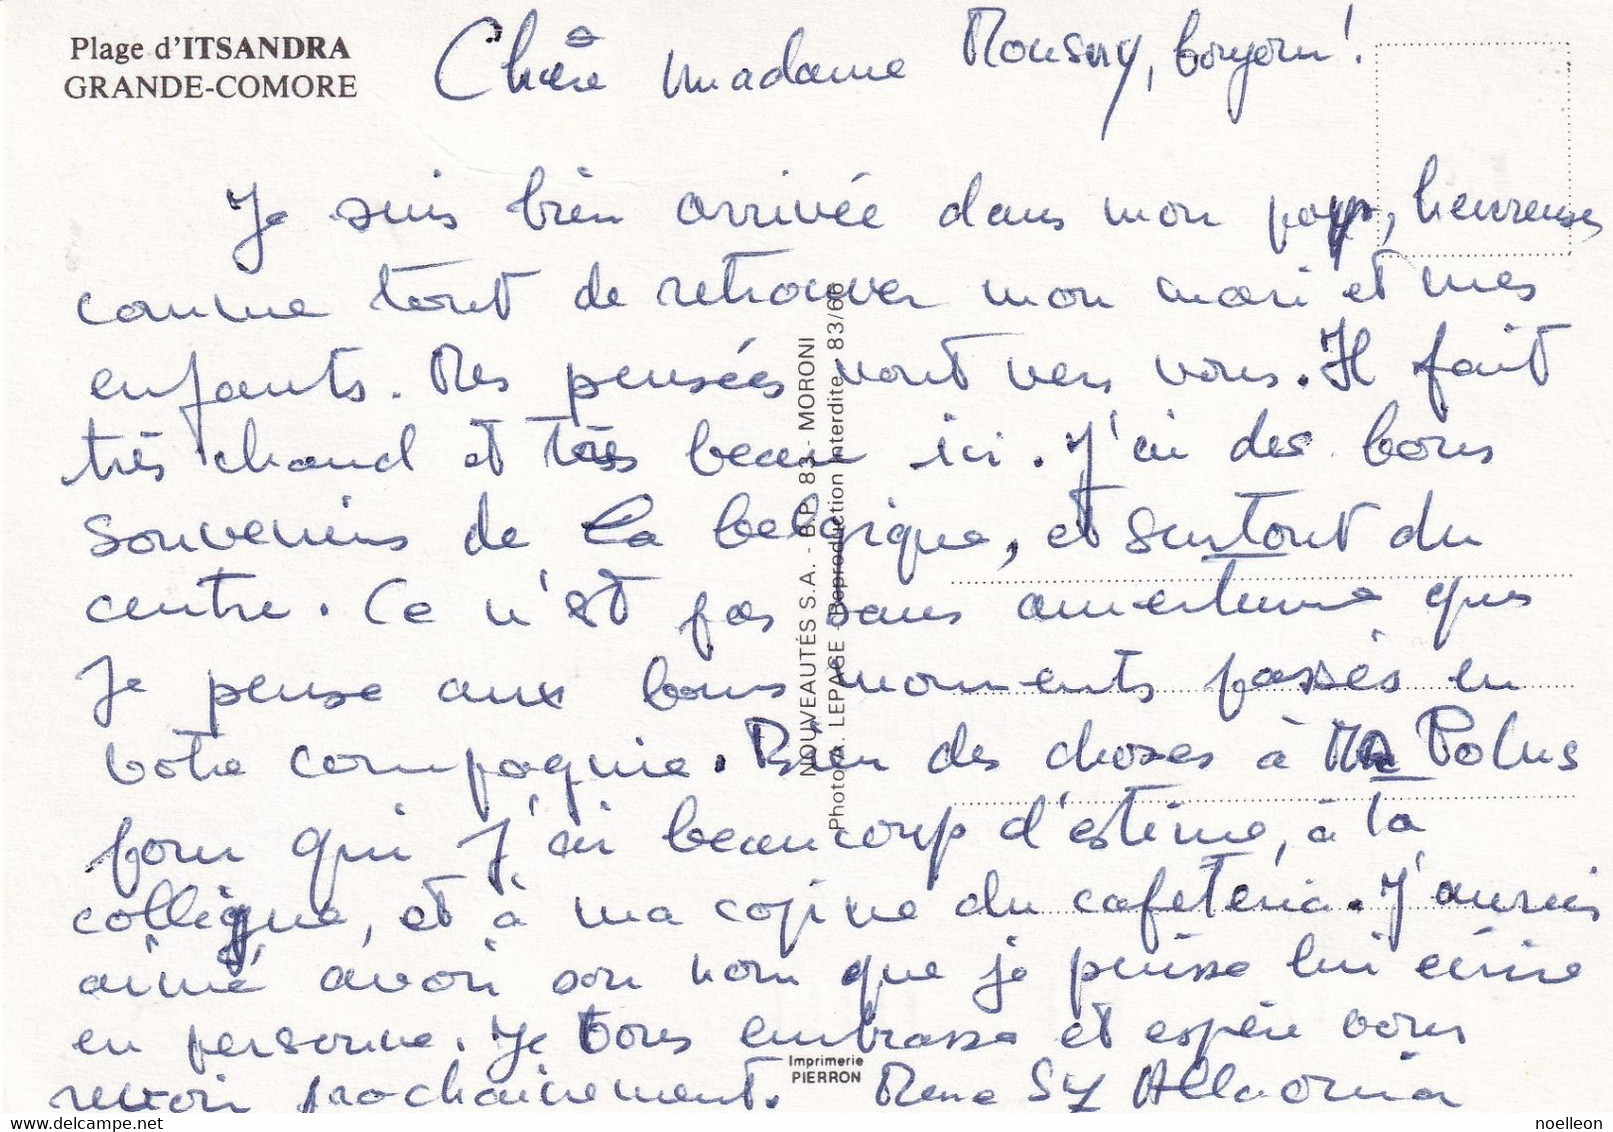 Plage d'ITSANDRA
GRANDE-COMORE
Chère Madame Mousny, bonjour!
Je suis bien arrivée dans mon pays, heureuse
comme tout de retrouver mon mari et mes
enfants. Mes pensées vont vers vous. Il fait
très chaud et très beau ici. J'ai des bons
souvenirs de la belgique, et surtout du
centre. Ce n'est pas sans amertume que
je pense aux bons moments passés en
votre compagnie. Bien des choses à Polus
pour qui j'ai beaucoup d'estime, à la
collègue, et à ma copine du cafeteria. J'aurais
aimé avoir son nom que je puisse lui écrire
en personne. Je vous embrasse et espère vous
revoir prochainement. Mme SY
NOUVEAUTÉS S.A. - B.P. 83 - MORONI
Photo A. LEPAGE - Reproduction interdite - 83/66
Imprimerie
PIERRON
www.delcampe.net
noelleon